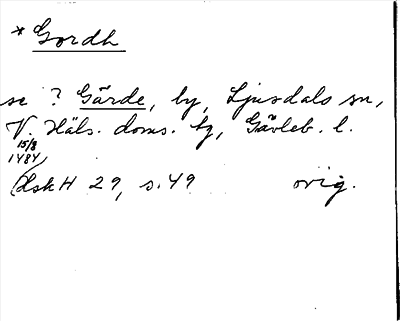 * Gordh
se ? Gärde, by, Ljusdals sn,
V. Häls. doms. tg, Gävleb. l.
15/8
1484
DskH 29, s. 49 orig.